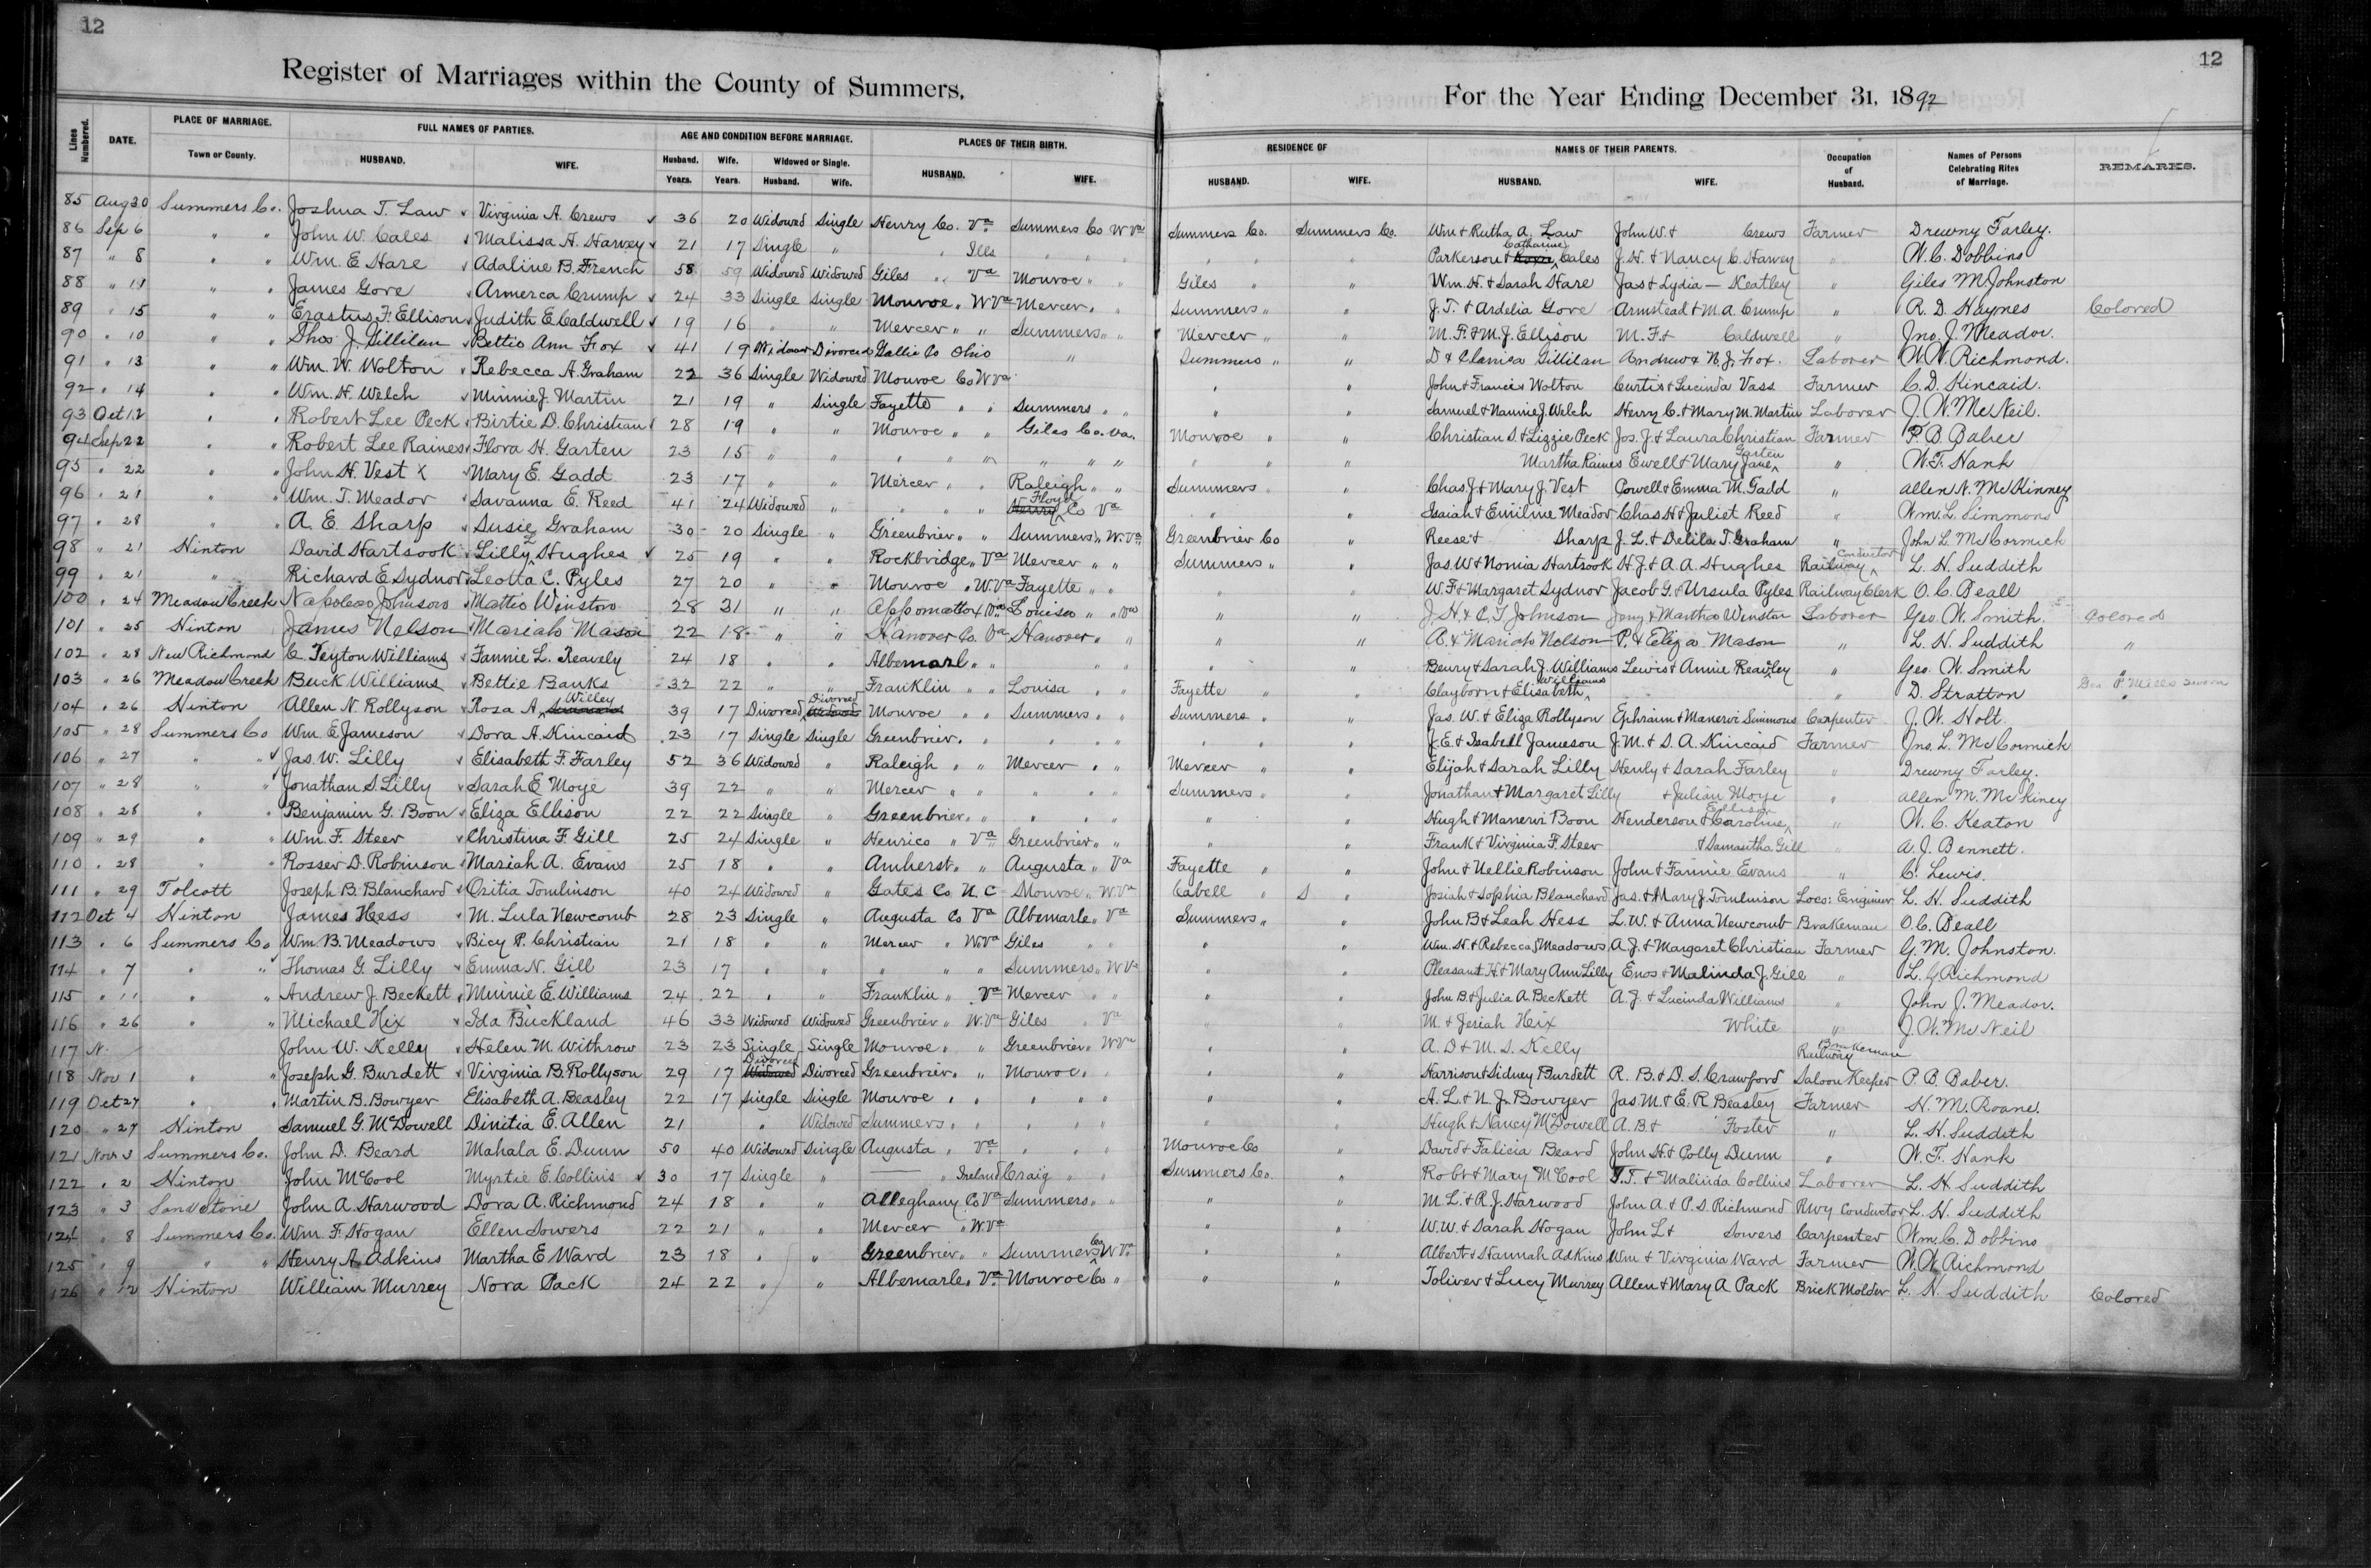 12
12
Register of Marriages within the County of Summers,
For the Year Ending December 31, 1892
Lines Numbered. DATE. PLACE OF MARRIAGE. FULL NAMES OF PARTIES. AGE AND CONDITION BEFORE MARRIAGE. PLACES OF THEIR BIRTH. RESIDENCE OF NAMES OF THEIR PARENTS. Occupation of Husband. Names of Persons Celebrating Rites of Marriage. REMARKS.
Town or County. HUSBAND. WIFE. Husband. Wife. Widowed or Single. HUSBAND. WIFE. HUSBAND. WIFE. HUSBAND. WIFE.
Years. Years. Husband. Wife.
85 Aug 30 Summers Co. Joshua T. Law Virginia A. Crews 36 20 Widowed Single Henry Co. Va Summers Co W Va Summers Co. Summers Co. Wm & Rutha A. Law John W. & Crews Farmer Drewny Farley.
86 Sep 6 " " John W. Cales Malissa A. Harvey 21 17 Single " " Ills " " " " " Parkerson & Catharine Cales J. H. & Nancy C. Harvey " W. C. Dobbins
87 " 8 " " Wm. E Hare Adaline B. French 58 59 Widowed Widowed Giles " Va Monroe " " Giles " " Wm. H. & Sarah Hare Jas & Lydia — Keatley " Giles M. Johnston
88 " 11 " " James Gore Armerca Crump 24 33 Single Single Monroe " W Va Mercer " " Summers " " J. T. & Ardelia Gore Armstead & M. A. Crump " R. D. Haynes Colored
89 " 15 " " Erastus F. Ellison Judith E Caldwell 19 16 " " Mercer " " Summers " " Mercer " " M. F. & M. J. Ellison M. F. & Caldwell " Jno. J. Meador.
90 " 10 " " Thos J. Gillilan Bettie Ann Fox 41 19 Widower Divorced Gallie Co Ohio " Summers " " D & Clarica Gillilan Andrew & N. J. Fox. Laborer W. W. Richmond.
91 " 13 " " Wm. W. Wolton Rebecca A. Graham 22 36 Single Widowed Monroe Co W Va " " John & Francis Wolton Curtis & Lucinda Vass Farmer C. D. Kincaid.
92 " 14 " " Wm. H. Welch Minnie J. Martin 21 19 " Single Fayette " " Summers " " " " Samuel & Nannie J. Welch Henry C. & Mary M. Martin Laborer J. W. McNeil.
93 Oct 12 " " Robert Lee Peck Birtie D. Christian 28 19 " " Monroe " " Giles Co. Va. Monroe " " Christian S. & Lizzie Peck Jos. J. & Laura Christian Farmer P. B. Baber
94 Sep 22 " " Robert Lee Raines Flora H. Garten 23 15 " " " " " " " " " " " Martha Raines Ewell & Mary Jane Garten " W. F. Hank
95 " 22 " " John H. Vest X Mary E. Gadd 23 17 " " Mercer " " Raleigh " " Summers " " Chas. J. & Mary J. Vest Powell & Emma M. Gadd " Allen N. McKinney
96 " 21 " " Wm. T. Meador Savanna E. Reed 41 24 Widowed " " " " Floyd Co Va " " Isaiah & Emiline Meador Chas H & Juliet Reed " Wm. L. Simmons
97 " 28 " " A. E. Sharp Susie Graham 30 20 Single " Greenbrier " " Summers " W. Va. Greenbrier Co " Reese & Sharp J. L. & Delila T. Graham " John L. McCormick
98 " 21 Hinton David Hartsook Lilly L Hughes 25 19 " " Rockbridge " Va Mercer " " Summers " " Jas. W & Nomia Hartsook H. J. & A. A. Hughes Railway Conductor L. H. Suddith
99 " 21 " Richard E Sydnor Leotta C. Pyles 27 20 " " Monroe " W. Va Fayette " " " " W. F & Margaret Sydnor Jacob G. & Ursula Pyles Railway Clerk O. C. Beall
100 " 24 Meadow Creek Napoleon Johnson Mattie Winston 28 31 " " Appomattox Va Louisa " " Va " " J. H. & C. T Johnson Jerry & Martha Winston Laborer Geo. W. Smith. Colored
101 " 25 Hinton James Nelson Mariah Mason 22 18 " " Hanover Co. Va Hanover " " " " A. & Mariah Nelson P. & Eliza Mason " L. H. Suddith "
102 " 28 New Richmond C. Peyton Williams Fannie L. Reavely 24 18 " " Albemarl " " " " " " Benry & Sarah J. Williams Lewis & Annie Reavley " Geo. W. Smith "
103 " 26 Meadow Creek Buck Williams Bettie Banks 32 22 " " Franklin " " Louisa " " Fayette " " Clayborn & Elisabeth Williams " D. Stratton "
104 " 26 Hinton Allen N. Rollyson Rosa A. Willey 39 17 Divorced Divorced Monroe " " Summers " " Summers " " Jas. W. & Eliza Rollyson Ephraim & Manervi Simmons Carpenter J. W. Holt.
105 " 28 Summers Co Wm E Jameson Dora A. Kincaid 23 17 Single Single Greenbrier " " " " " " " " J. E & Isabell Jameson J. M. & S. A. Kincaid Farmer Jno. L. McCormick
106 " 27 " " Jas. W. Lilly Elisabeth F. Farley 52 36 Widowed " Raleigh " " Mercer " " Mercer " " Elijah & Sarah Lilly Henly & Sarah Farley " Drewny Farley.
107 " 28 " " Jonathan S. Lilly Sarah E Moye 39 22 " " Mercer " " " " " Summers " " Jonathan & Margaret Lilly & Julian Moye " Allen M. McKiney
108 " 28 " " Benjamin G. Boon Eliza Ellison 22 22 Single " Greenbrier " " " " " " " Hugh & Manervi Boon Henderson & Caroline Ellison " W. C. Keaton
109 " 29 " " Wm. F. Steer Christina F. Gill 25 24 Single " Henrico " Va Greenbrier " " " " Frank & Virginia F. Steer & Samantha Gill " A. J. Bennett.
110 " 28 " " Rosser D. Robinson Mariah A. Evans 25 18 " " Amherst " " Augusta " Va Fayette " " John & Nellie Robinson John & Fannie Evans " C. Lewis.
111 " 29 Tolcott Joseph B. Blanchard Oritia Tomlinson 40 24 Widowed " Gates Co N. C Monroe " W. Va Cabell " S " Josiah & Sophia Blanchard Jas. & Mary J. Tomlinson Loco: Enginier L. H. Suddith
112 Oct 4 Hinton James Hess M. Lula Newcomb 28 23 Single " Augusta Co Va Albemarle " Va Summers " " John B & Leah Hess L. W. & Anna Newcomb Brakeman O. C. Beall
113 " 6 Summers Co Wm B. Meadows Bicy P. Christian 21 18 " " Mercer " W. Va Giles " " " " Wm. H. & Rebecca J Meadows A. J. & Margaret Christian Farmer G. M. Johnston.
114 " 7 " " Thomas G. Lilly Emma N. Gill 23 17 " " " " " Summers " W Va " " Pleasant H. & Mary Ann Lilly Enos & Malinda J. Gill " L. G. Richmond
115 " 11 " " Andrew J. Beckett Minnie E. Williams 24 22 " " Franklin " Va Mercer " " " " John B. & Julia A. Beckett A. J. & Lucinda Williams " John J. Meador.
116 " 26 " " Michael Hix Ida Buckland 46 33 Widowed Widowed Greenbrier " W. Va Giles " Va " " M. & Jeriah Hix White " J. W. McNeil
117 N. John W. Kelly Helen M. Withrow 23 23 Single Single Monroe " " Greenbrier " W Va " " A. D & M. S. Kelly Railway Brakeman
118 Nov 1 " " Joseph G. Burdett Virginia B. Rollyson 29 17 Divorced Divorced Greenbrier " " Monroe " " " " Harrison & Sidney Burdett R. B. & D. S. Crawford Saloon Keeper P. B. Baber.
119 Oct 27 " " Martin B. Bowyer Elisabeth A. Beasley 22 17 Single Single Monroe " " " " " " " A. L. & N. J. Bowyer Jas. M. & E. R. Beasley Farmer H. M. Roane.
120 " 27 Hinton Samuel G. McDowell Dinitia E. Allen 21 " Widowed Summers " " " " " " " Hugh & Nancy McDowell A. B. & Foster " L. H. Suddith
121 Nov 3 Summers Co. John D. Beard Mahala E. Dunn 50 40 Widowed Single Augusta " Va " " " Monroe Co " David & Falicia Beard John H. & Colly Dunn " W. F. Hank
122 " 2 Hinton John McCool Myrtie E. Collins 30 17 Single " — " Ireland Craig " " Summers Co. " Robt & Mary McCool G. T. & Malinda Collins Laborer L. H. Suddith
123 " 3 Sandstone John A. Harwood Dora A. Richmond 24 18 " " Alleghany Co Va Summers " " " " M. L. & R. J. Harwood John A. & P. S. Richmond Rwy Conductor L. H. Suddith
124 " 8 Summers Co. Wm. F. Hogan Ellen Sowers 22 21 " " Mercer " W. Va " " W. W. & Sarah Hogan John L & Sowers Carpenter Wm. C. Dobbins
125 " 9 " " Henry A. Adkins Martha E. Ward 23 18 " " Greenbrier " " Summers Co W Va " " Albert & Hannah Adkins Wm & Virginia Ward Farmer W. W. Richmond
126 " 12 Hinton William Murrey Nora Pack 24 22 " " Albemarle " Va Monroe Co " " " Toliver & Lucy Murrey Allen & Mary A Pack Brick Molder L. H. Suddith Colored